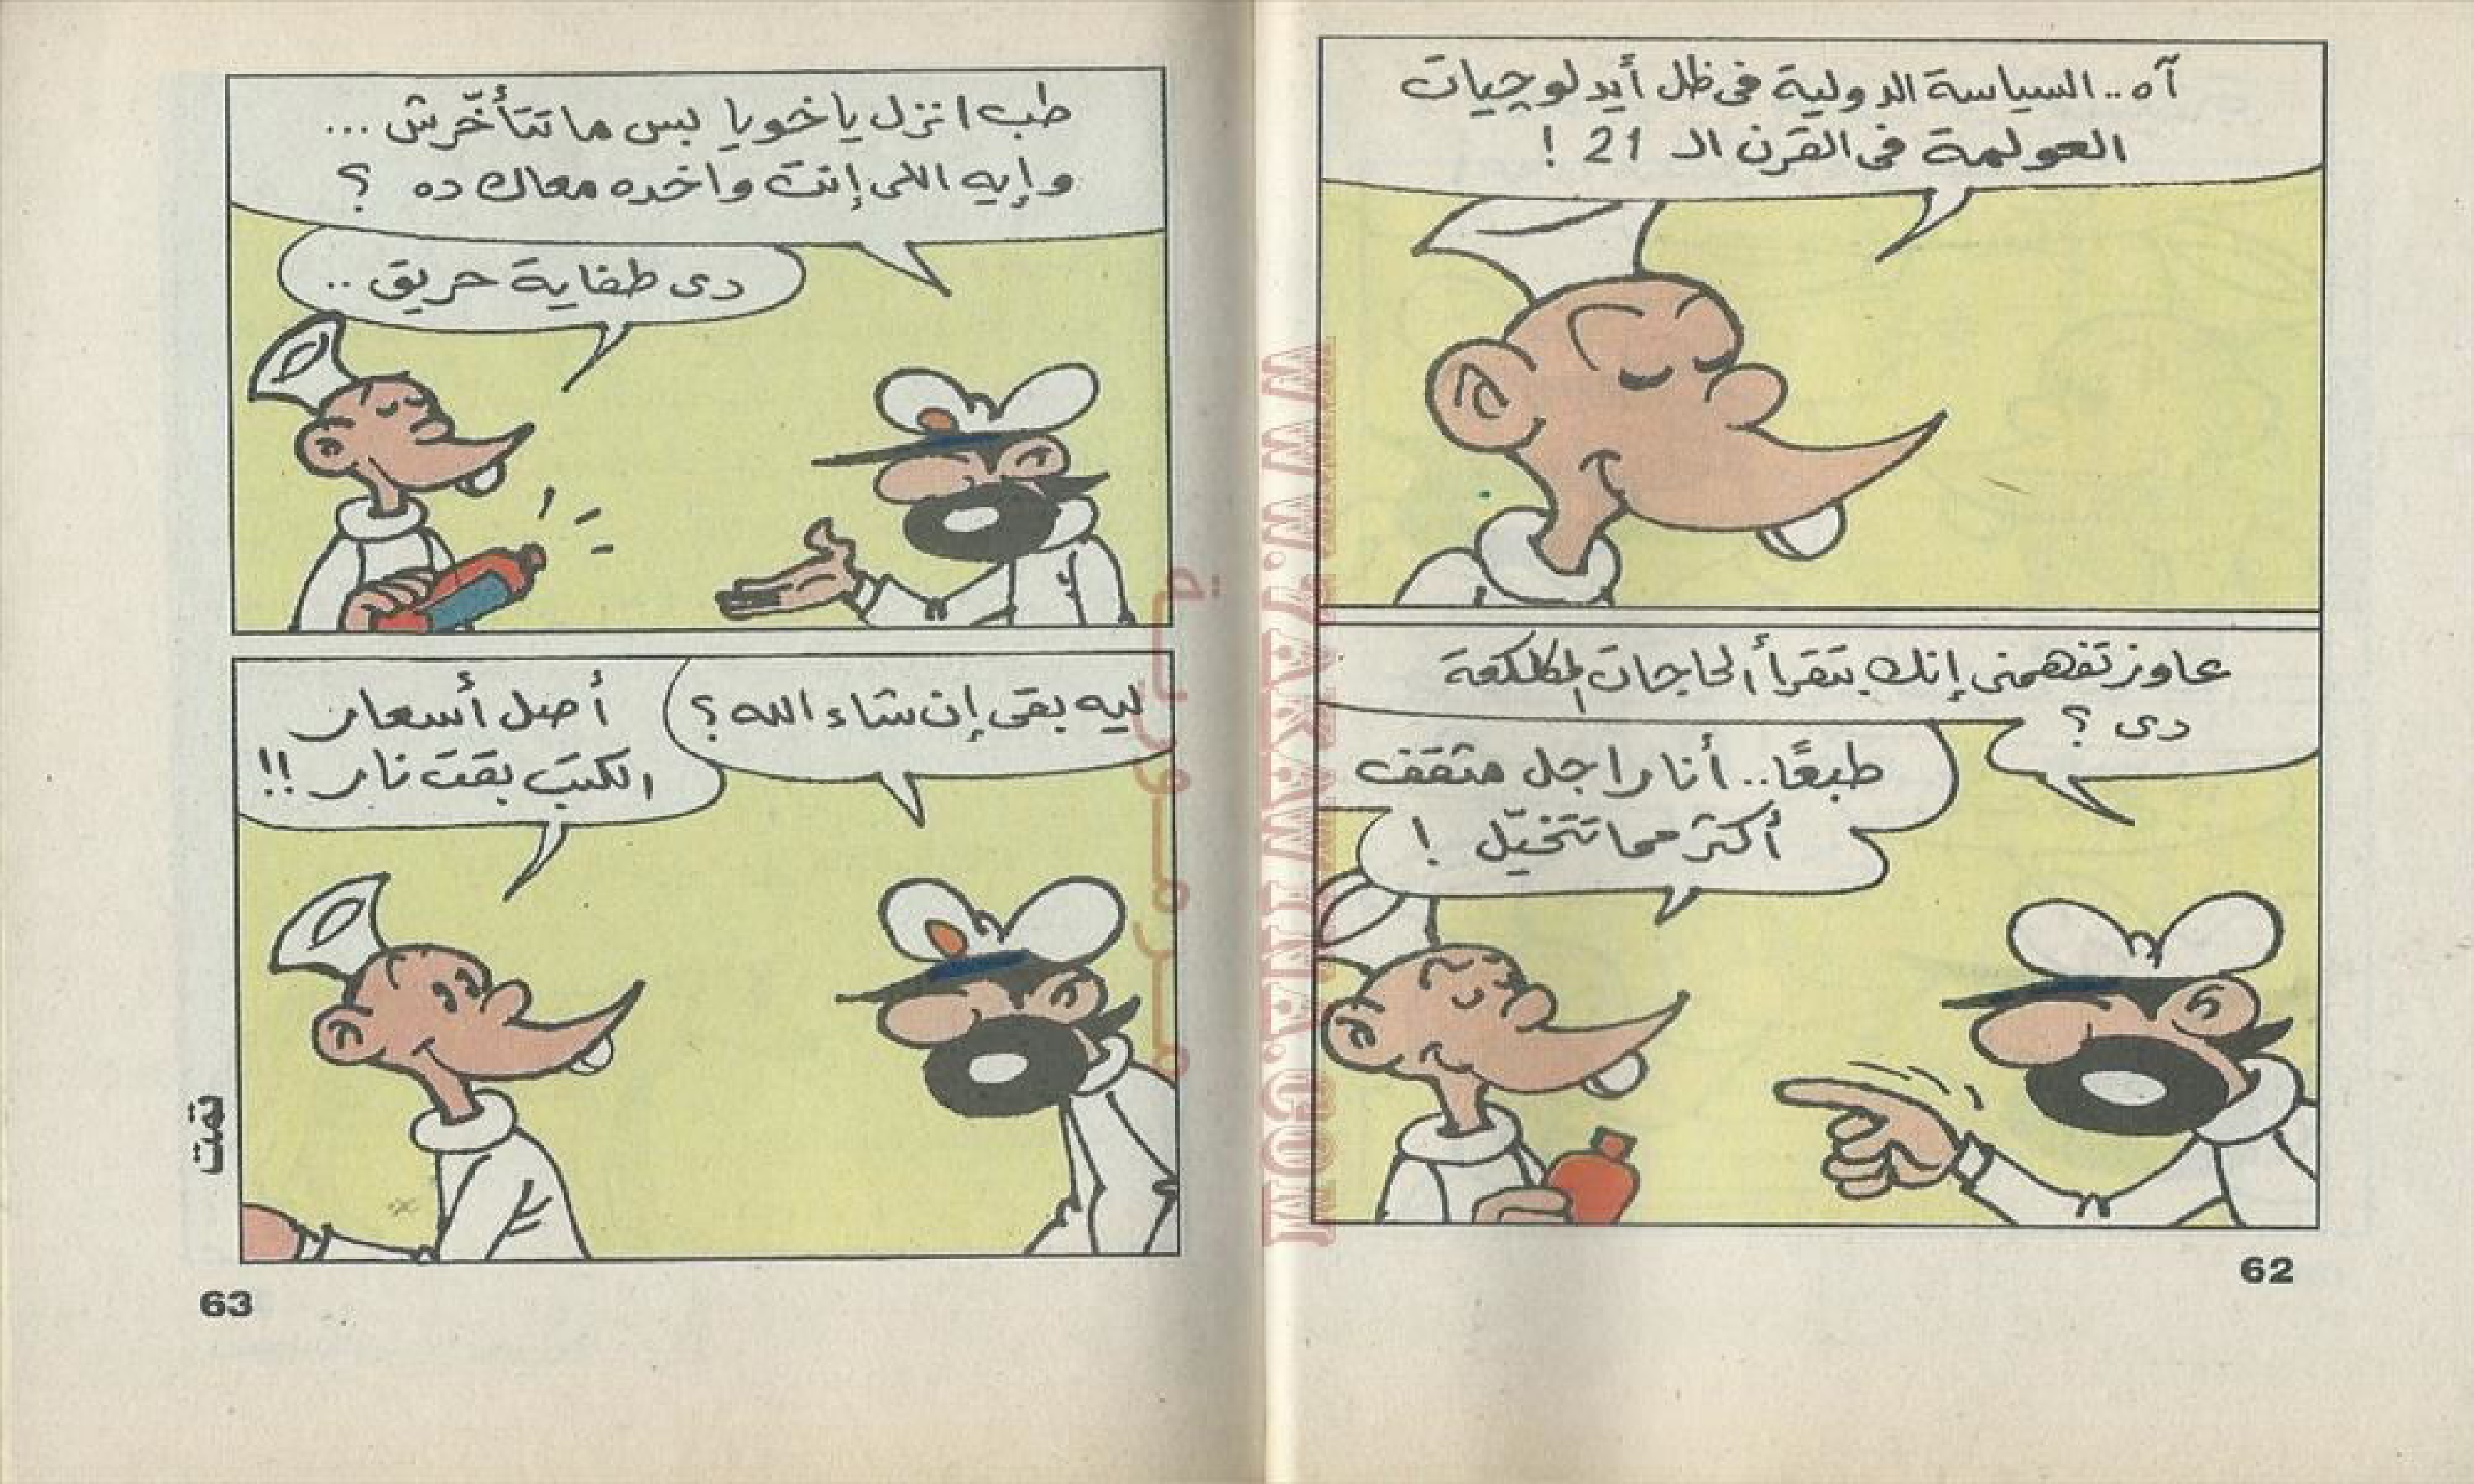 آه.. السياسة الدولية فى ظل أيدلوچيات
العولمة فى القرن الـ 21 !
عاوز تفهمنى إنك بتقرأ الحاجات المكلكعة
دى ؟
طبعًا.. أنا راجل مثقف
أكتر مما تتخيّل !
62
طب انزل ياخويا بس ما تتأخّرش ...
وإيه اللى إنت واخده معاك ده ؟
دى طفاية حريق ..
ليه بقى إن شاء الله ؟
أصل أسعار
الكتب بقت نار !!
تمت
63